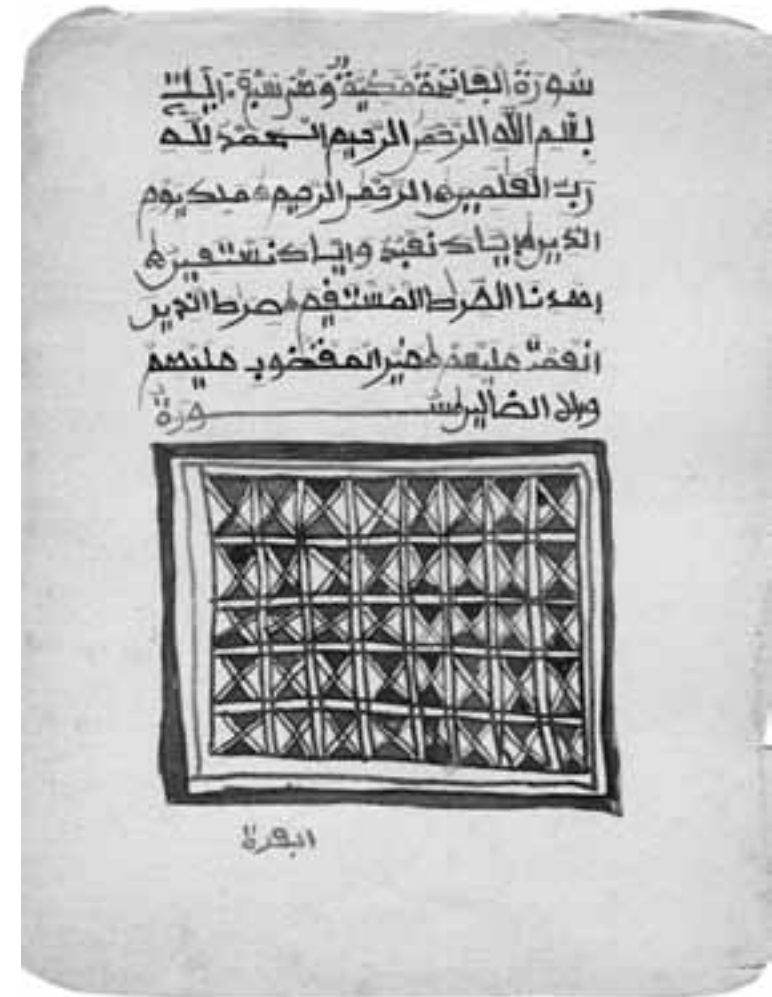 سُورَةُ الْفَاتِحَةِ مَكِّيَّةٌ وَهْيَ سَبْعُ ءَايَٰتٍ
بِسْمِ اللَّهِ الرَّحْمَٰنِ الرَّحِيمِ الْحَمْدُ لِلَّهِ
رَبِّ الْعَٰلَمِينَ الرَّحْمَٰنِ الرَّحِيمِ مَلِكِ يَوْمِ
الدِّينِ إِيَّاكَ نَعْبُدُ وَإِيَّاكَ نَسْتَعِينُ
اهْدِنَا الصِّرَٰطَ الْمُسْتَقِيمَ صِرَٰطَ الَّذِينَ
أَنْعَمْتَ عَلَيْهِمْ غَيْرِ الْمَغْضُوبِ عَلَيْهِمْ
وَلَا الضَّالِّينَ سُورَةُ
البقرة